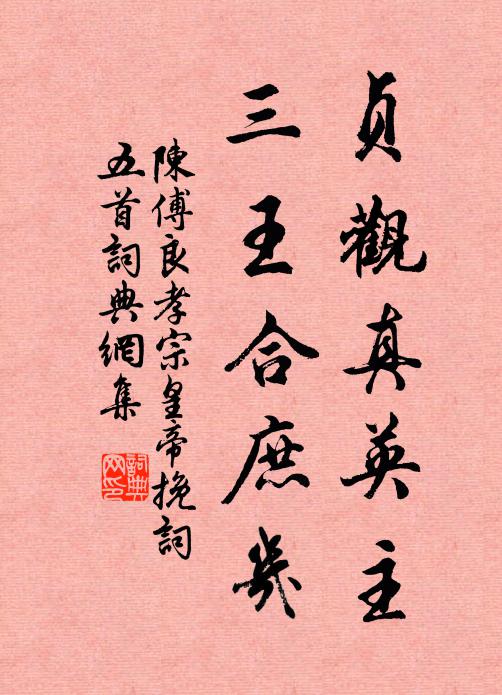 貞觀真英主
三王合庶幾
陳傅良孝宗皇帝挽詞
五首詞典網集
詞典
网印